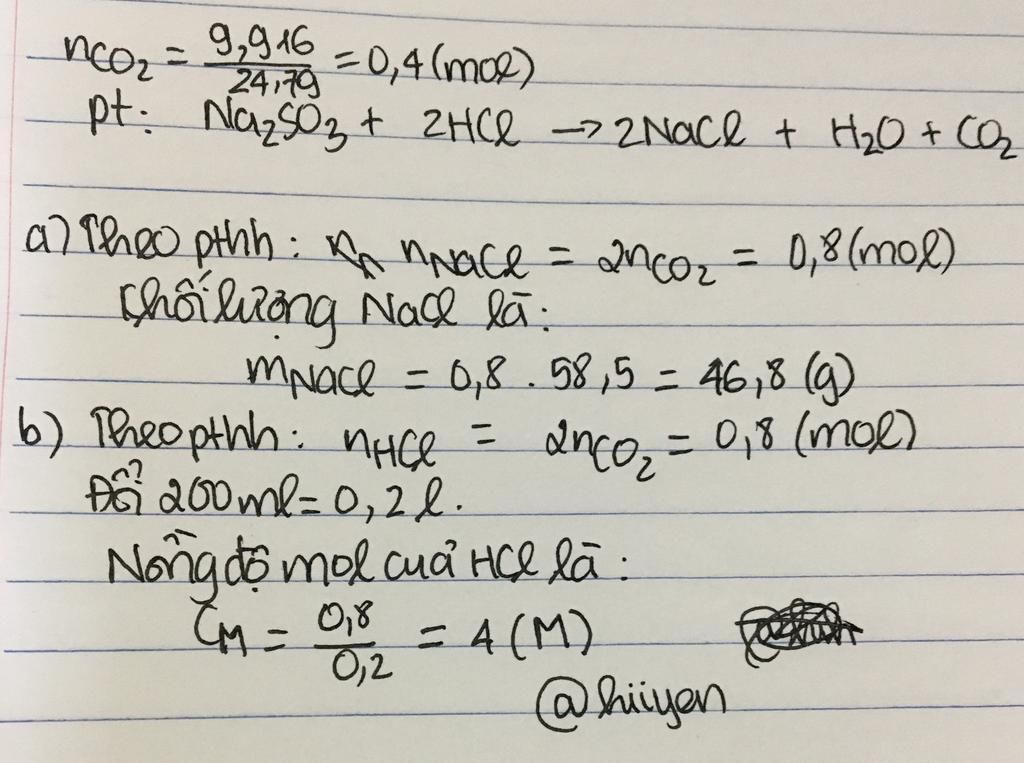 nCO₂ = 9,916/24,79 = 0,4 (mol)
pt: Na₂SO₃ + 2HCl → 2NaCl + H₂O + CO₂
a) Theo pthh: nₙ nNaCl = 2nCO₂ = 0,8 (mol)
Khối lượng NaCl là:
mNaCl = 0,8 . 58,5 = 46,8 (g)
b) Theo pthh: nHCl = 2nCO₂ = 0,8 (mol)
Đổi 200ml = 0,2 l.
Nồng độ mol của HCl là:
CM = 0,8/0,2 = 4 (M)
@hiiyen